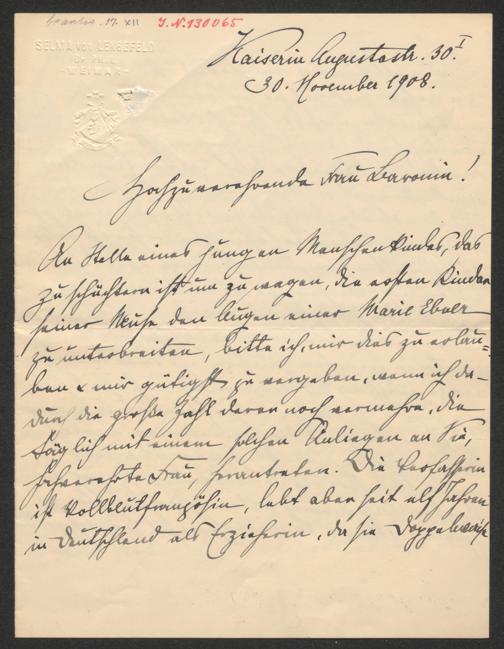 beantw. 17. XII
I.N. 130065
SELMA VON LENGEFELD
DR. PHIL.
WEIMAR
Kaiserin Augustastr. 30.I
30. November 1908.
Hochzuverehrende Frau Baronin!
An Stelle eines jungen Menschenkindes, das
zu schüchtern ist um zu wagen, die ersten Kinder
seiner Muse den Augen einer Marie Ebner
zu unterbreiten, bitte ich, mir dies zu erlau=
ben & mir gütigst zu vergeben, wenn ich da-
durch die große Zahl derer noch vermehre, die
täglich mit einem solchen Anliegen an Sie,
hochverehrte Frau, herantreten. Die Verfasserin
ist Vollblutfranzösin, lebt aber seit elf Jahren
in Deutschland als Erzieherin, da sie Doppelwaise